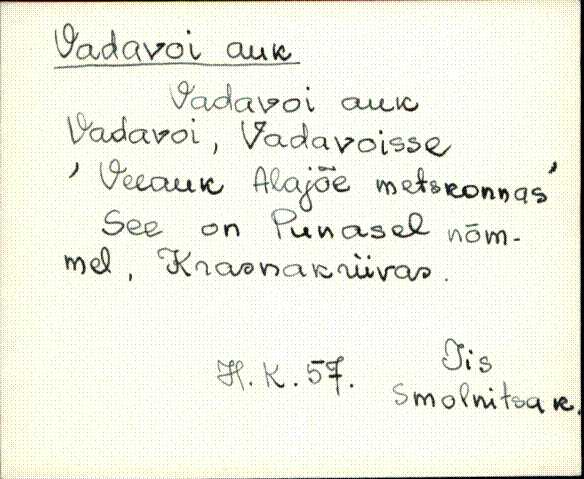 Vadavoi auk
Vadavoi auk
Vadavoi, Vadavoisse
'Veeauk Alajõe metskonnas'
See on Punasel nõm-
mel, Krasnakriivas.
H.K.57. Iis
Smolnitsa k.